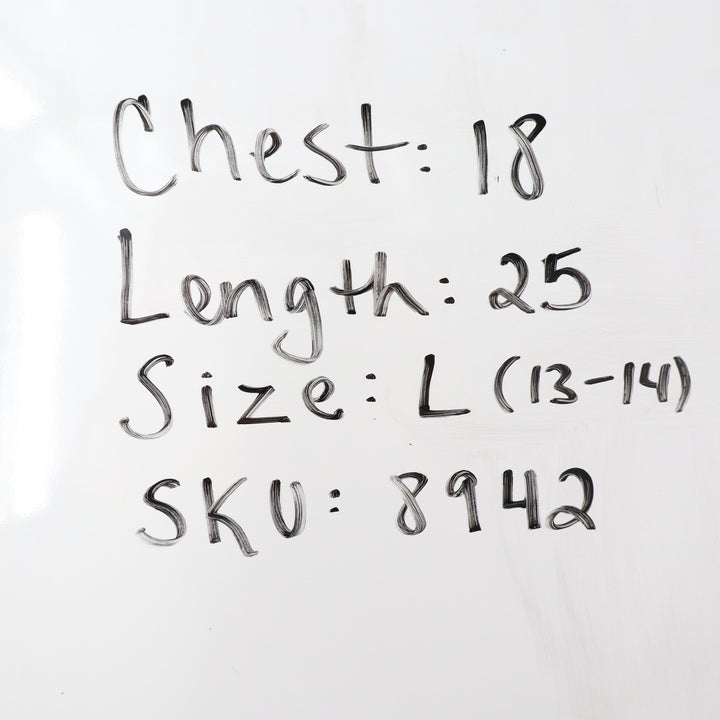 Chest: 18
Length: 25
Size: L (13-14)
SKU: 8942